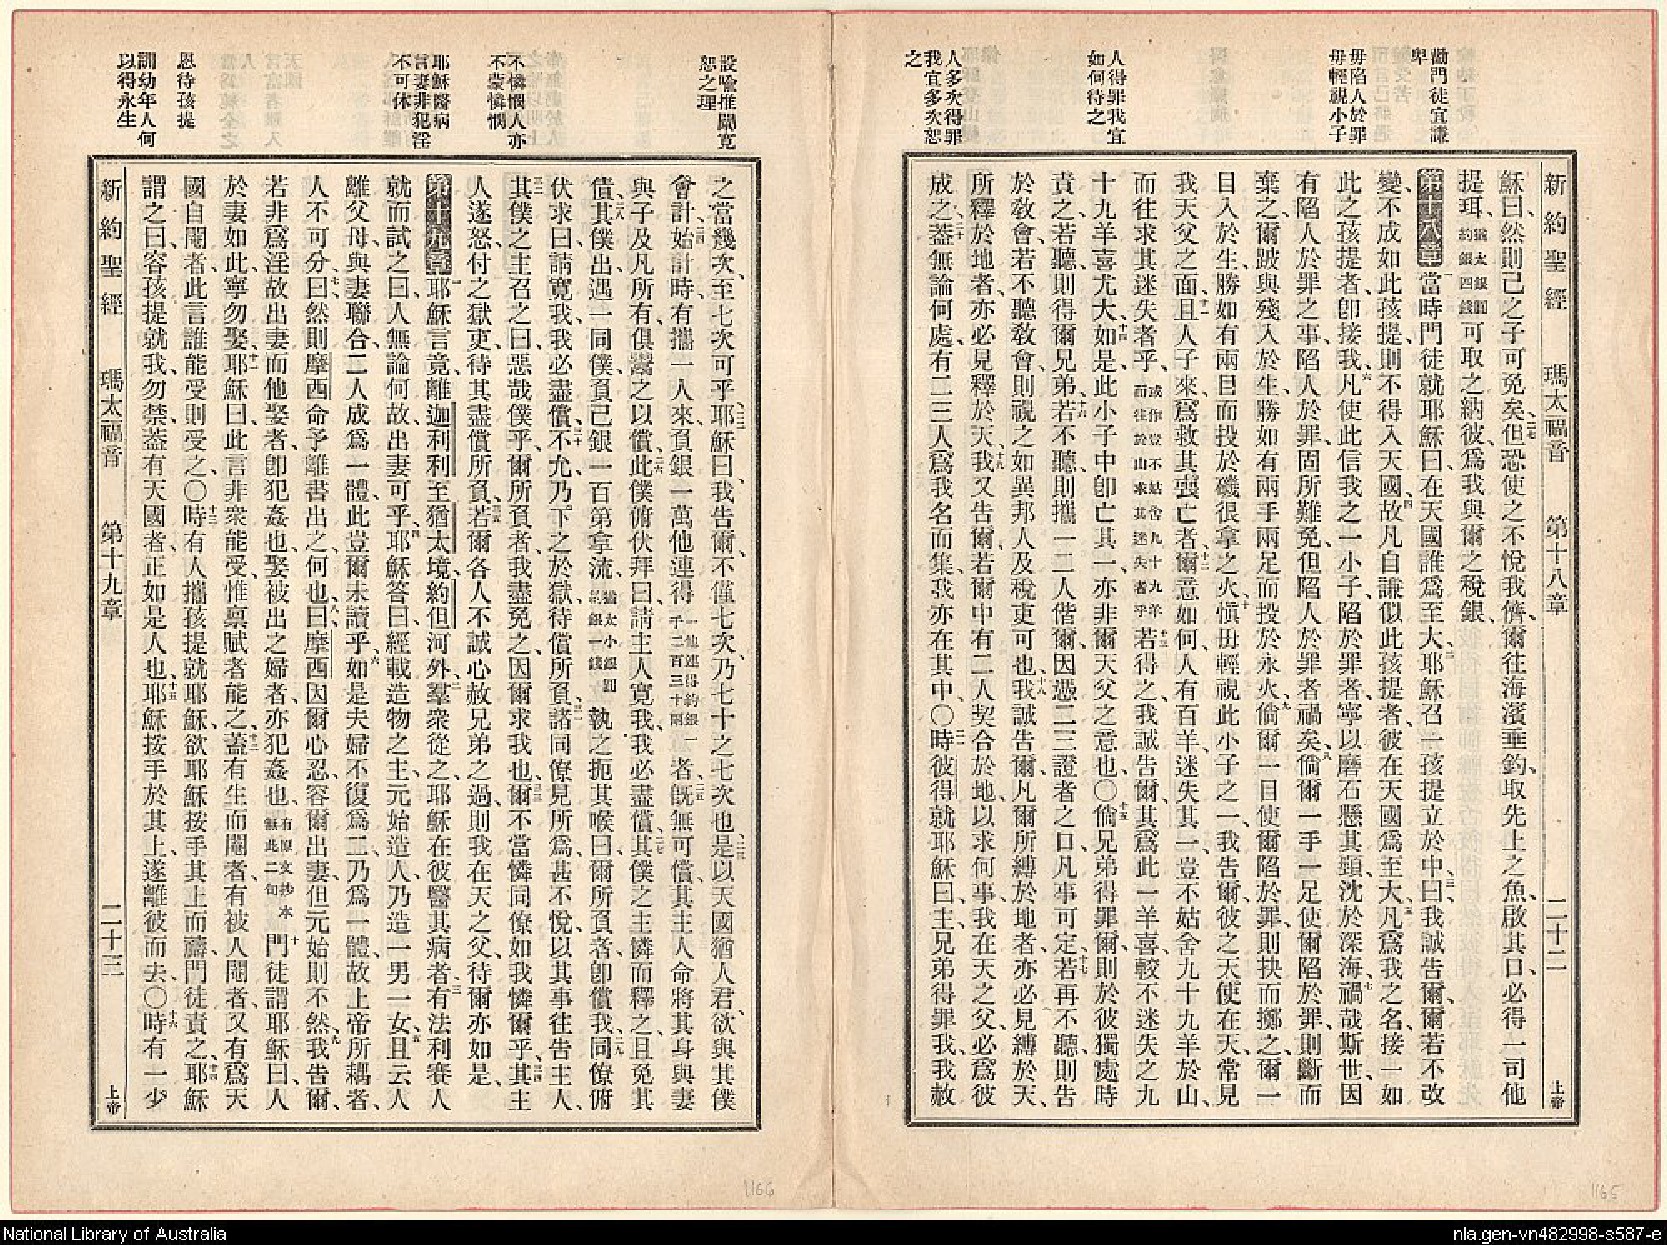 勸門徒宜謙
卑
毋陷人於罪
毋輕視小子
人得罪我宜
如何待之
人多次得罪
我宜多次恕
之
新約聖經 瑪太福音 第十八章 二十二 上帝
穌曰、然則己之子可免矣、二七但恐使之不悅我儕、爾往海濱垂釣、取先上之魚、啟其口、必得一司他
提珥、猶太銀圓約銀四錢可取之納彼、爲我與爾之稅銀、
第十八章 一當時門徒就耶穌曰、在天國誰爲至大、二耶穌召一孩提立於中、曰、三我誠告爾、爾若不改
變、不成如此孩提、則不得入天國、四故凡自謙似此孩提者、彼在天國爲至大、五凡爲我之名、接一如
此之孩提者、卽接我、六凡使此信我之一小子陷於罪者、寧以磨石懸其頸、沈於深海、七禍哉斯世、因
有陷人於罪之事、陷人於罪、固所難免、但陷人於罪者禍矣、八倘爾一手一足、使爾陷於罪、則斷而
棄之、爾跛與殘入於生、勝如有兩手兩足而投於永火、九倘爾一目使爾陷於罪、則抉而擲之、爾一
目入於生、勝如有兩目而投於磯很拿之火、十愼毋輕視此小子之一、我告爾、彼之天使在天、常見
我天父之面、十一且人子來、爲救其喪亡者、十二爾意如何、人有百羊、迷失其一、豈不姑舍九十九羊於山、
而往求其迷失者乎、或作豈不姑舍九十九羊而往於山求其迷失者乎十三若得之、我誠告爾、其爲此一羊喜、較不迷失之九
十九羊喜尤大、十四如是、此小子中卽亡其一、亦非爾天父之意也、〇十五倘兄弟得罪爾、則於彼獨處時
責之、若聽、則得爾兄弟、十六若不聽、則攜一二人偕爾、因憑二三證者之口、凡事可定、十七若再不聽、則告
於敎會、若不聽敎會、則視之如異邦人及稅吏可也、十八我誠告爾、凡爾所縛於地者、亦必見縛於天、
所釋於地者、亦必見釋於天、十九我又告爾、若爾中有二人契合於地、以求何事、我在天之父、必爲彼
成之、二十蓋無論何處、有二三人爲我名而集、我亦在其中、〇二一時彼得就耶穌曰、主、兄弟得罪我、我赦
設喻推闡寬
恕之理
不憐憫人亦
不蒙憐憫
耶穌醫病
言妻非犯淫
不可休
恩待孩提
訓幼年人何
以得永生
之當幾次、至七次可乎、二二耶穌曰、我告爾、不僅七次、乃七十之七次也、二三是以天國猶人君、欲與其僕
會計、二四始計時、有攜一人來、負銀一萬他連得一他連得約銀一千二百三十兩者、二五旣無可償、其主人命將其身與妻
與子及凡所有俱鬻之以償、二六此僕俯伏拜曰、請主人寬我、我必盡償、二七其僕之主憐而釋之、且免其
債、二八其僕出、遇一同僕、負己銀一百第拿流、猶太小銀圓約銀一錢執之、扼其喉、曰、爾所負者卽償我、二九同僚俯
伏求曰、請寬我、我必盡償、三十不允、乃下之於獄、待償所負、三一諸同僚見所爲、甚不悅、以其事往告主人、
三二其僕之主召之曰、惡哉僕乎、爾所負者、我盡免之、因爾求我也、三三爾不當憐同僚、如我憐爾乎、三四其主
人遂怒、付之獄吏、待其盡償所負、三五若爾各人不誠心赦兄弟之過、則我在天之父、待爾亦如是、
第十九章 一耶穌言竟、離迦利利、至猶太境、約但河外、二羣衆從之、耶穌在彼醫其病者、三有法利賽人
就而試之曰、人無論何故、出妻可乎、四耶穌答曰、經載造物之主、元始造人、乃造一男一女、五且云、人
離父母、與妻聯合、二人成爲一體、此豈爾未讀乎、六如是、夫婦不復爲二、乃爲一體、故上帝所耦者、
人不可分、七曰、然則摩西命予離書出之、何也、八曰、摩西因爾心忍、容爾出妻、但元始則不然、九我告爾、
若非爲淫故出妻而他娶者、卽犯姦也、娶被出之婦者、亦犯姦也、有原文抄本無此二句十門徒謂耶穌曰、人
於妻如此、寧勿娶、十一耶穌曰、此言非衆能受、惟稟賦者能之、十二蓋有生而閹者、有被人閹者、又有爲天
國自閹者、此言誰能受則受之、〇十三時有人攜孩提就耶穌、欲耶穌按手其上而禱、門徒責之、十四耶穌
謂之曰、容孩提就我、勿禁、蓋有天國者、正如是人也、十五耶穌按手於其上、遂離彼而去、〇十六時有一少
新約聖經 瑪太福音 第十九章 二十三 上帝
1166
1165
National Library of Australia
nla.gen-vn482998-s587-e